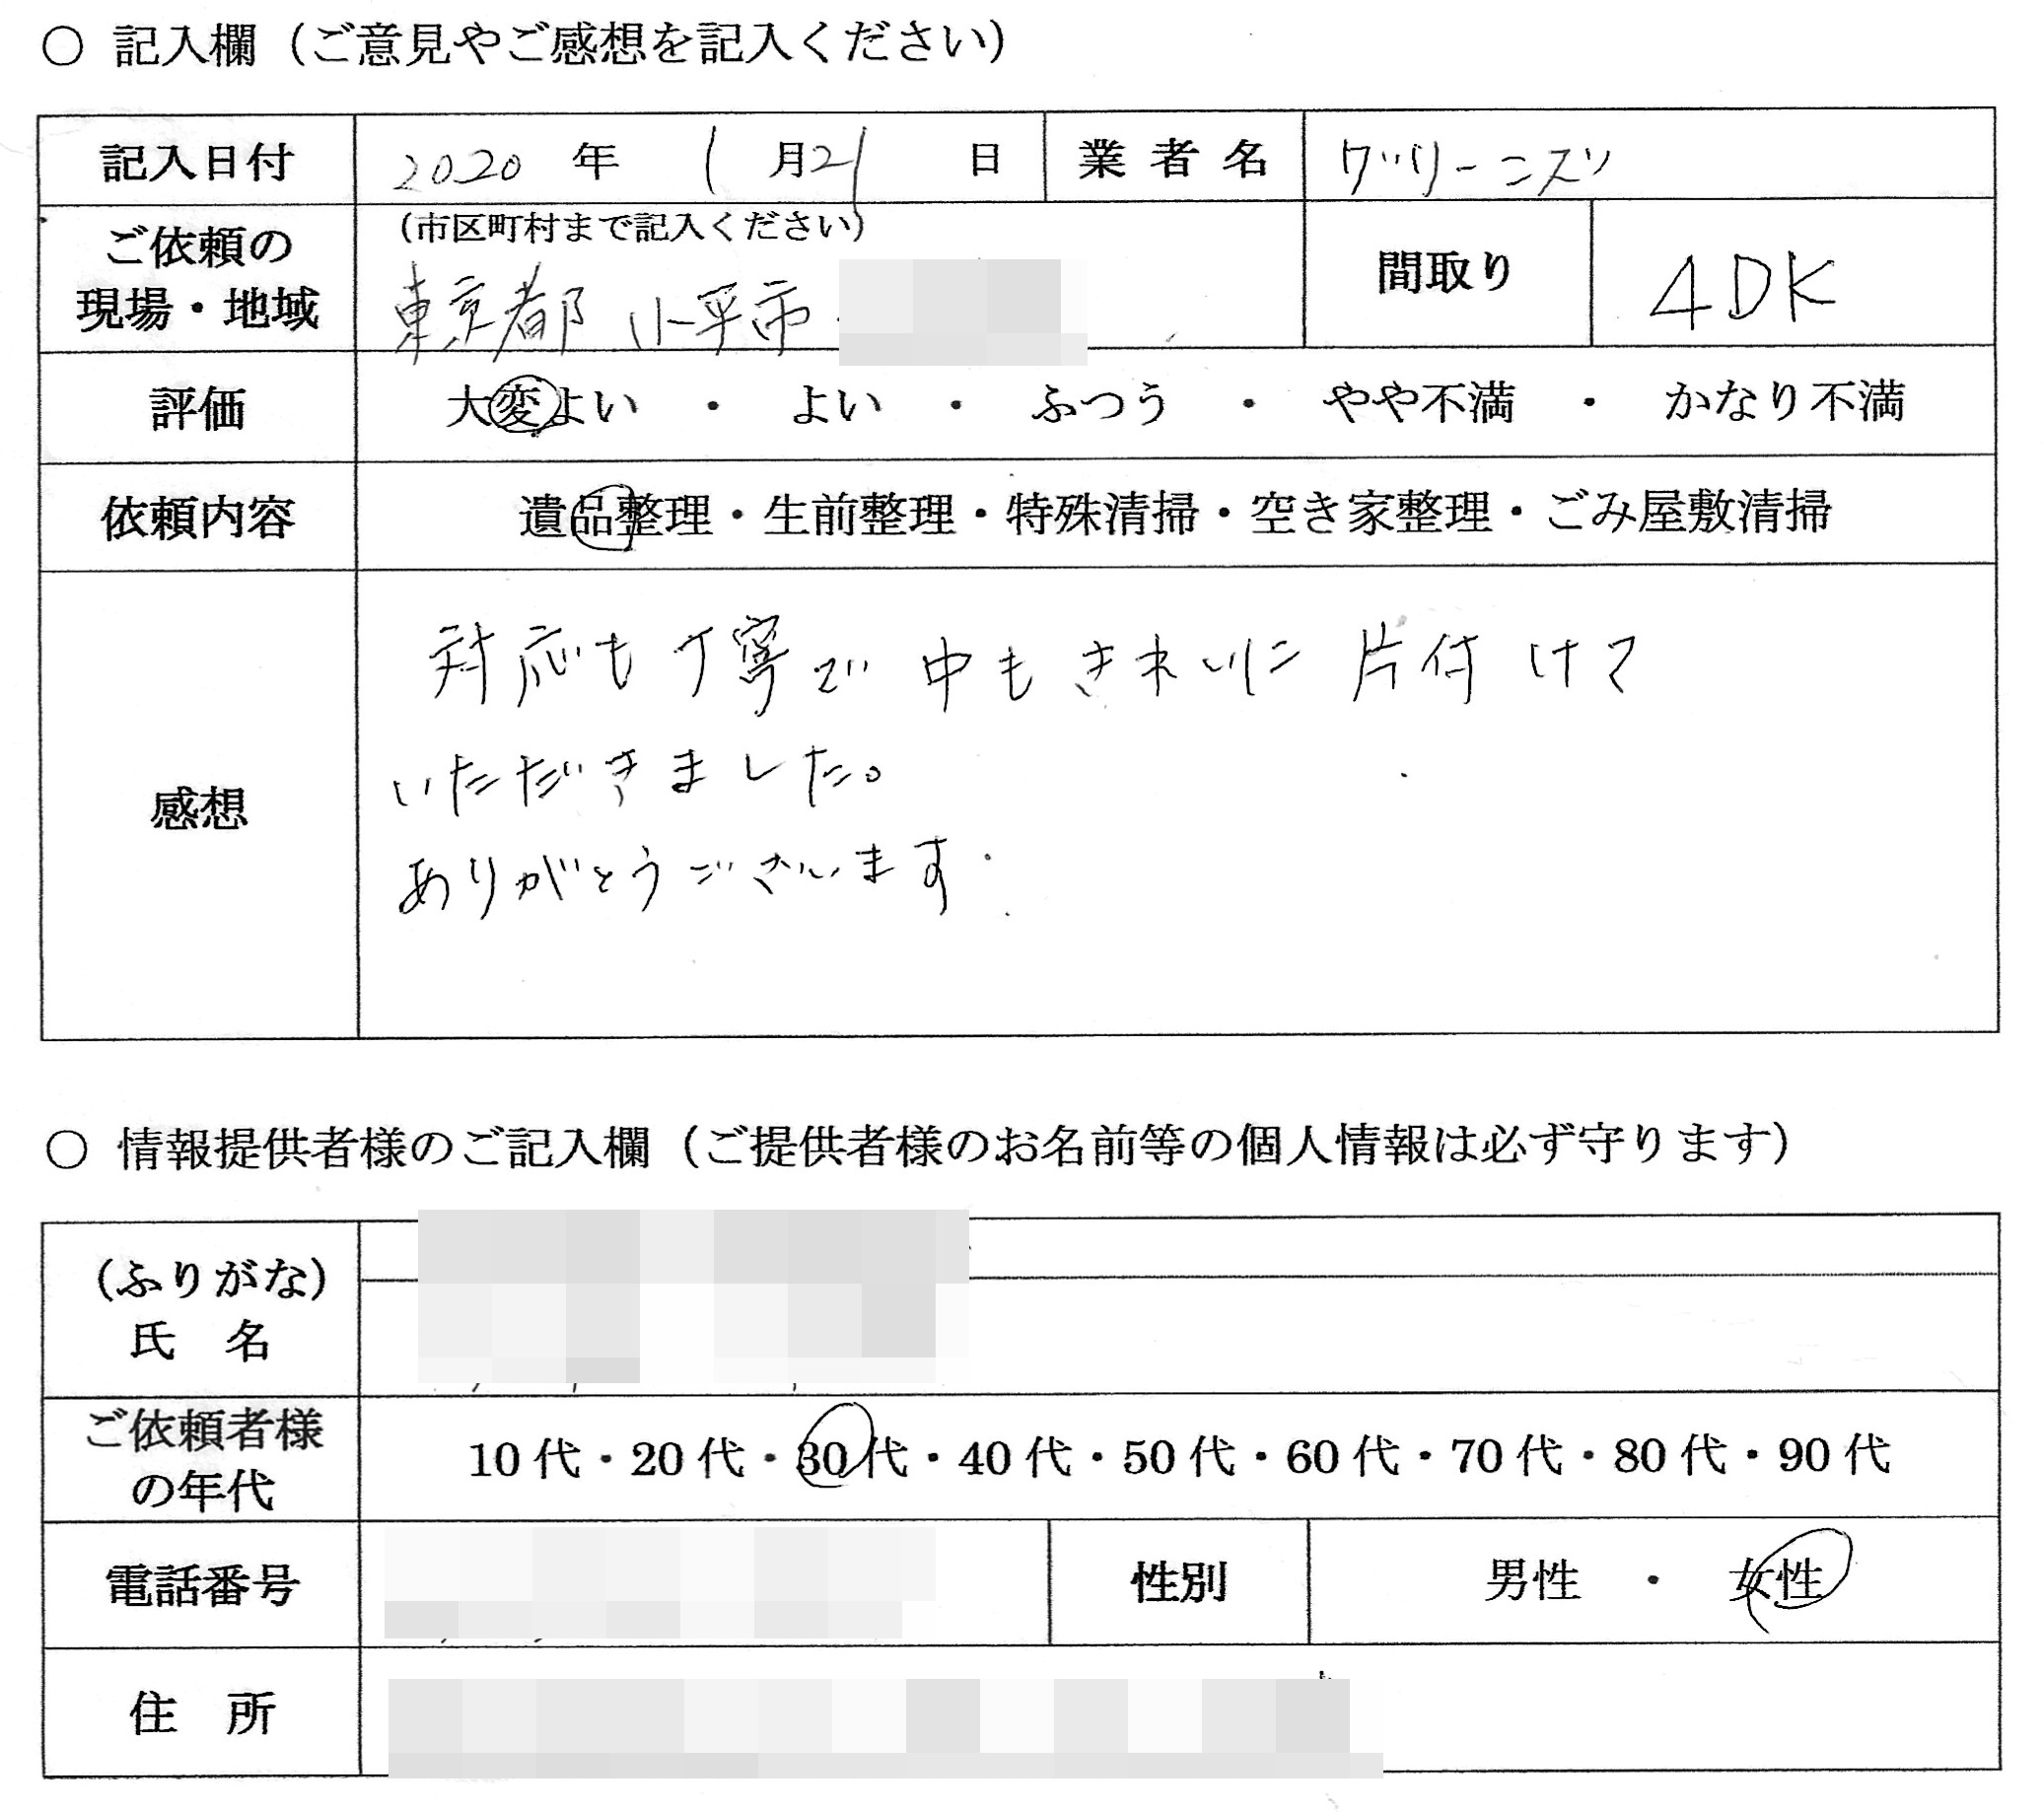 ○ 記入欄（ご意見やご感想を記入ください）
記入日付 2020 年 1 月 21 日 業者名 グリーニスツ
ご依頼の現場・地域 （市区町村まで記入ください） 間取り 4DK
東京都 小平市
評価 大変よい ・ よい ・ ふつう ・ やや不満 ・ かなり不満
依頼内容 遺品整理・生前整理・特殊清掃・空き家整理・ごみ屋敷清掃
感想
対応も丁寧で中もきれいに片付けて
いただきました。
ありがとうございます.
○ 情報提供者様のご記入欄（ご提供者様のお名前等の個人情報は必ず守ります）
（ふりがな）
氏 名
ご依頼者様の年代 10代・20代・30代・40代・50代・60代・70代・80代・90代
電話番号 性別 男性 ・ 女性
住 所